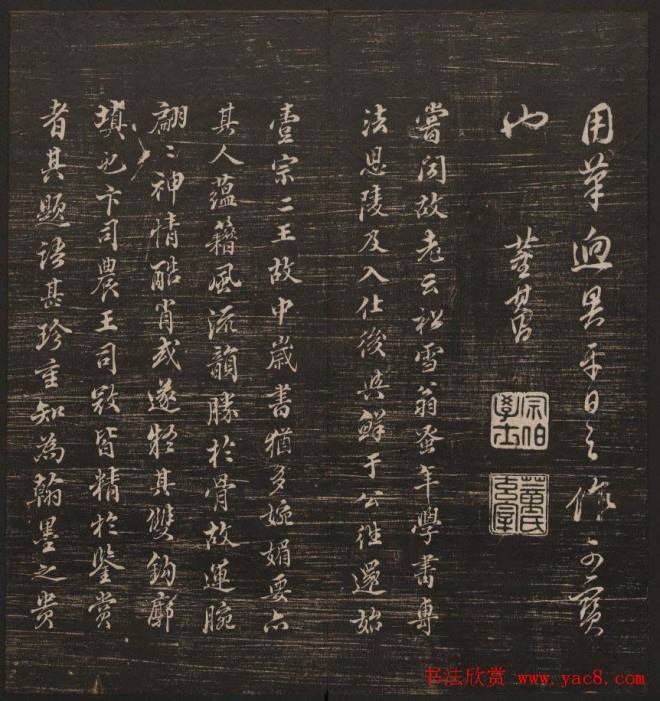 用筆迥異平日之作可寶
也
董其昌
宗伯學士
董氏玄宰
嘗聞故老云松雪翁蚤年學書專
法思陵及入仕後與鮮于公往還始
壹宗二王故中歲書猶多婉媚要亦
其人蘊藉風流韻勝於骨故運腕
翩翩神情酷肖或遂疑其雙鉤廓
填也卞司農王司寇皆精於鑒賞
者其題語甚珍重知為翰墨之貴
书法欣赏 www.yac8.com